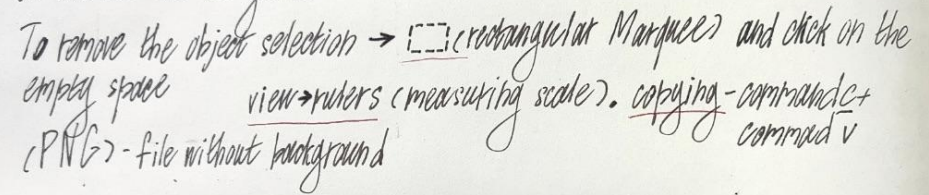 To remove the object selection → (rectangular Marquee) and click on the
empty space view→rulers (measuring scale). copying - command c+
commad v
(PNG) - file without background